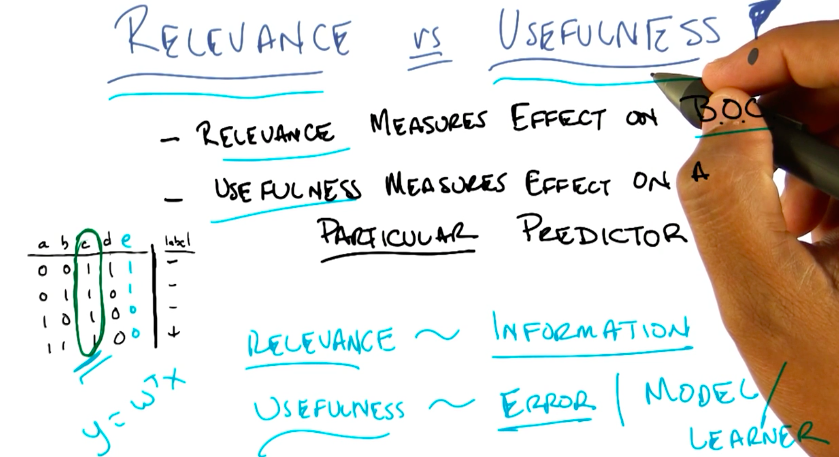 RELEVANCE vs USEFULNESS
- RELEVANCE MEASURES EFFECT ON B.O.C
- USEFULNESS MEASURES EFFECT ON A
PARTICULAR PREDICTOR
a b c d e label
0 0 1 1 1 -
0 1 1 0 1 -
1 0 1 0 0 -
1 1 1 0 0 +
y = wᵀx
RELEVANCE ~ INFORMATION
USEFULNESS ~ ERROR | MODEL/
LEARNER